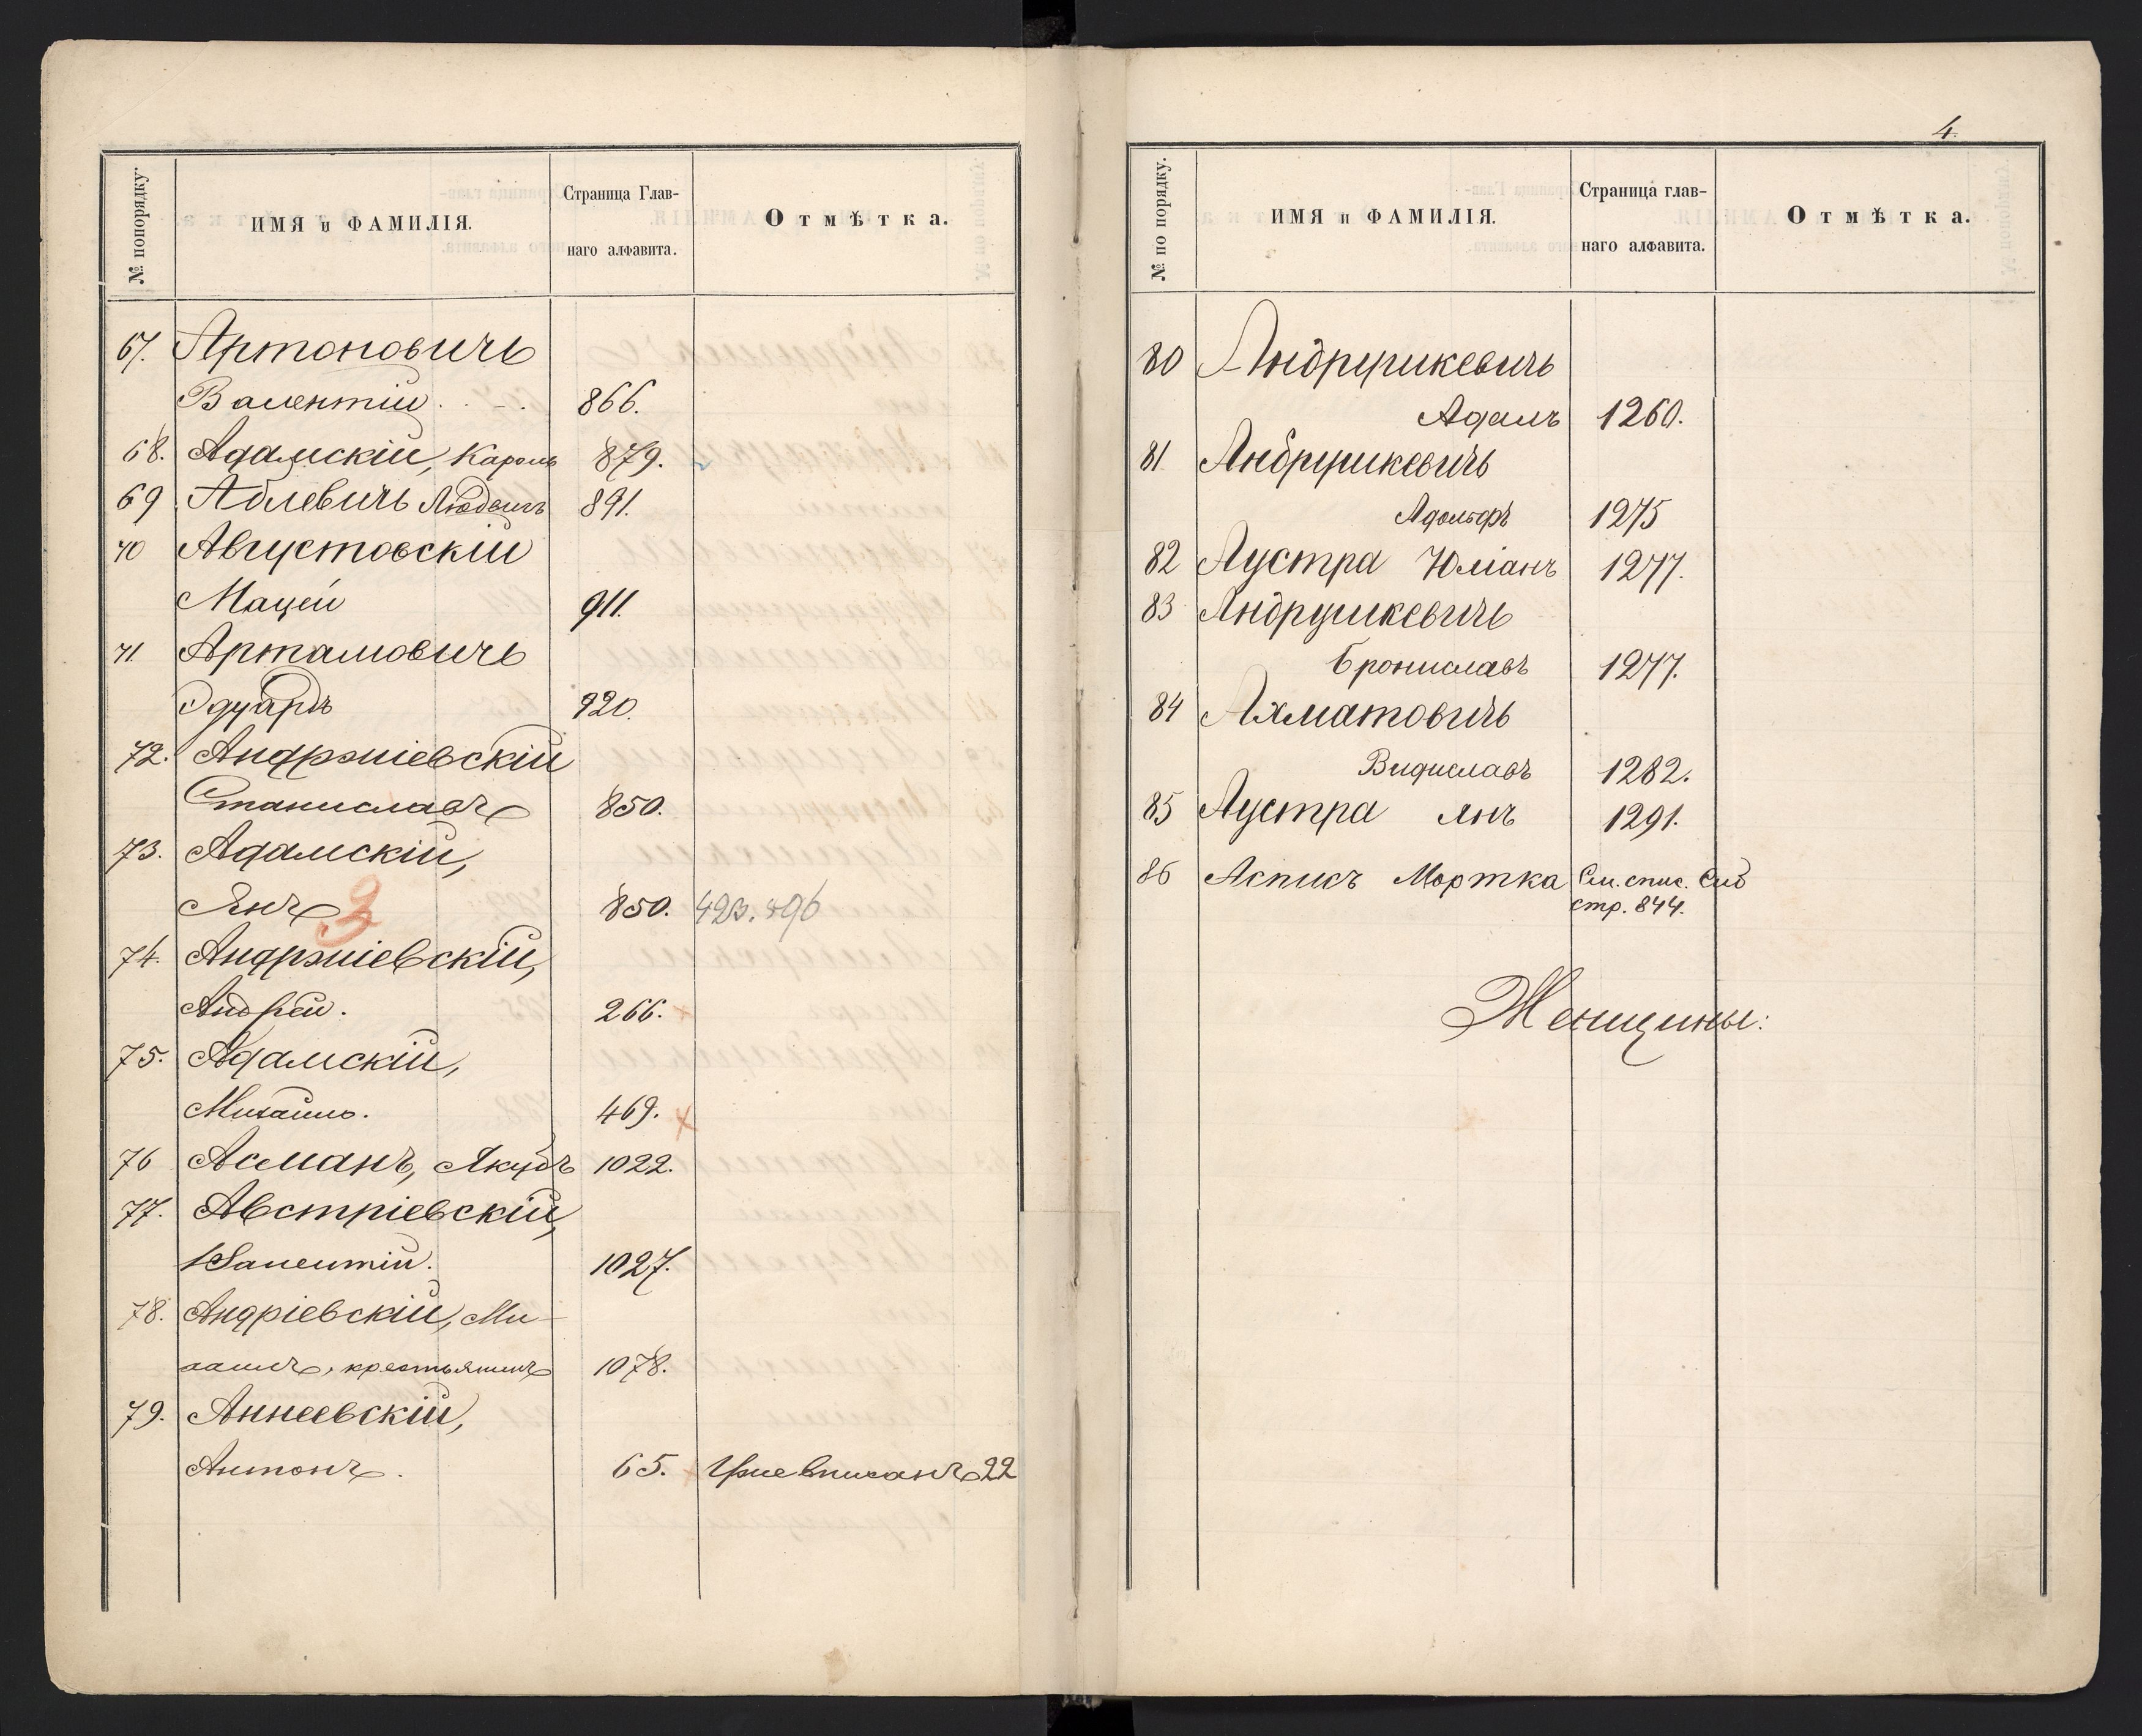 № попорядку.
ИМЯ и ФАМИЛІЯ.
Страница Глав-
наго алфавита.
Отмѣтка.
67. Артоновичъ
Валентій . . - . 866.
68. Адамскій, Кароль 879.
69 Аблевичь Людвигъ 891.
70 Августовскій
Мацей 911.
71. Артамовичъ
Эдуардъ 920.
72. Андржіевскій
Станиславъ 850.
73. Адамскій,
Янъ 850. 423. 896
74. Андржіевскій,
Андрей. 266.
75. Адамскій,
Михаилъ. 469. х
76 Асманъ, Якубъ 1022.
77. Австріевскій,
Валентій. 1027.
78. Андріевскій, Ми-
хаилъ, крестьянинъ 1078.
79. Аннеевскій,
Антонъ. 65. Уже вписанъ 22
4.
№ по порядку.
ИМЯ и ФАМИЛІЯ.
Страница глав-
наго алфавита.
Отмѣтка.
80 Андрушкевичъ
Адамъ 1260.
81 Андрушкевичъ
Адольфъ 1275
82 Аустра Юліанъ 1277.
83 Андрушкевичъ
Брониславъ 1277.
84 Ахматовичъ
1282.
85 Аустра Янъ 1291.
86 Асписъ Мортка См. спис.
стр. 844.
Женщины: